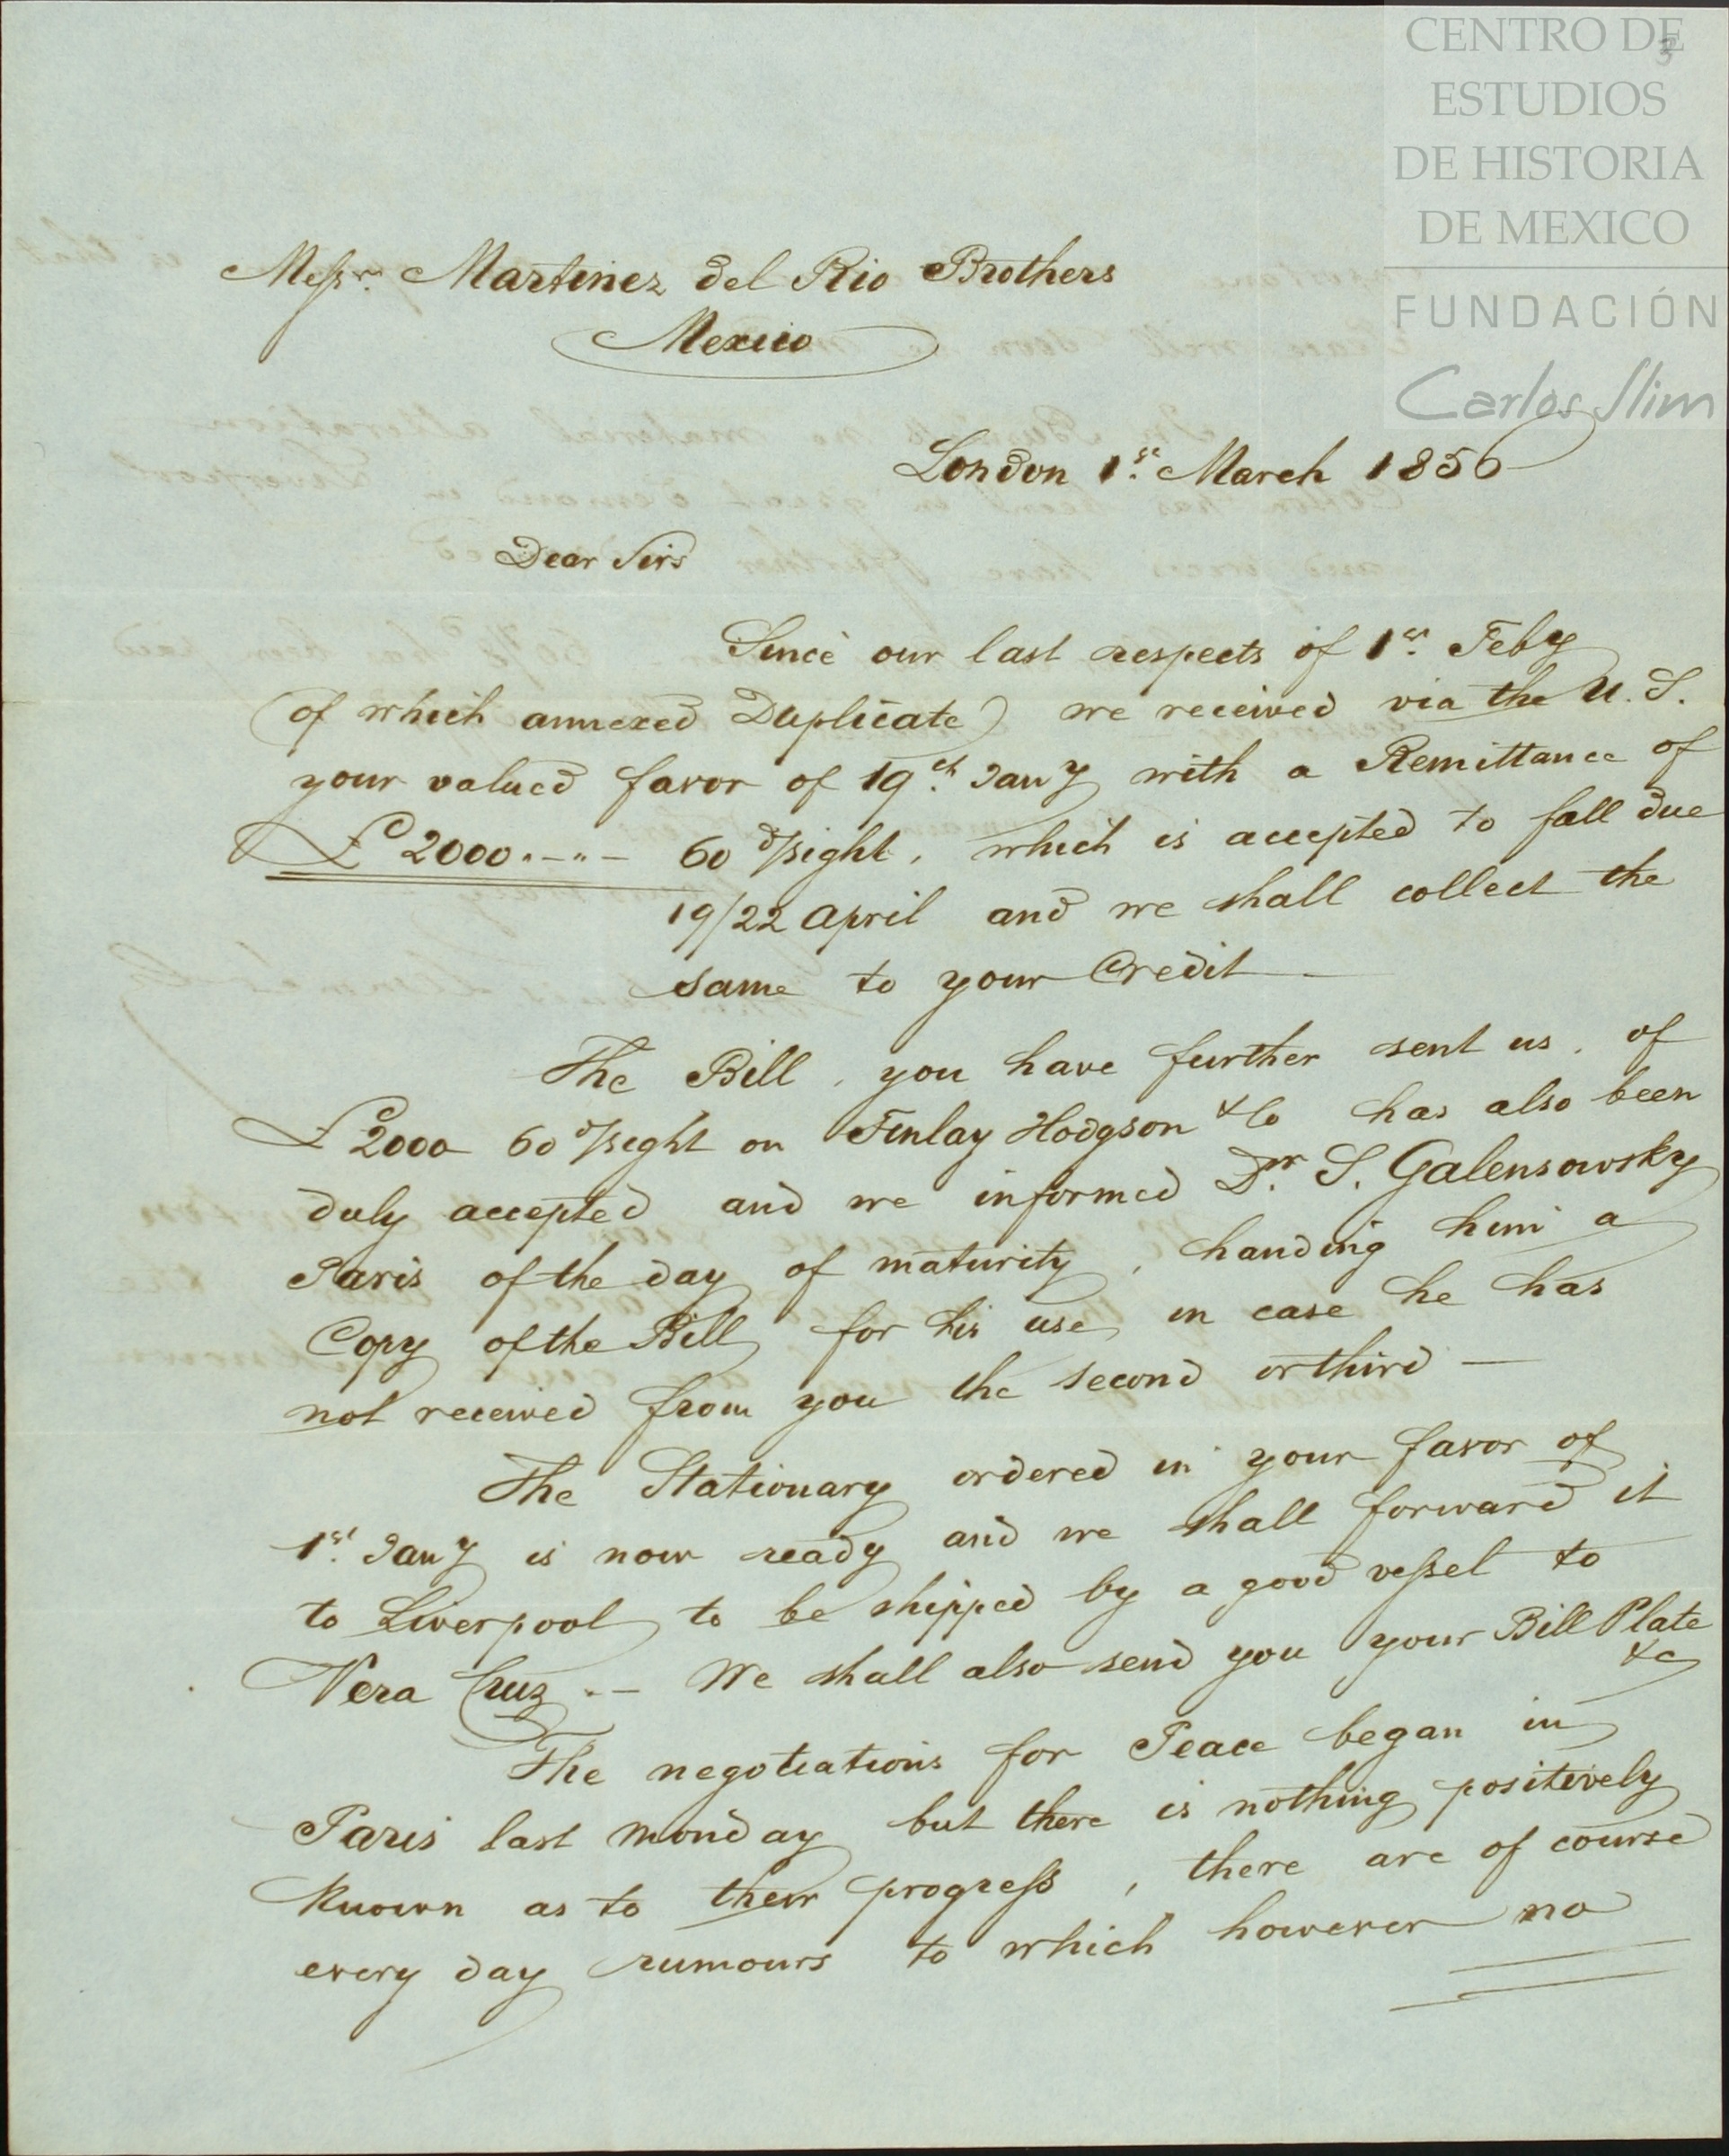 CENTRO DE
ESTUDIOS
DE HISTORIA
DE MEXICO
FUNDACIÓN
Carlos Slim
3
Messrs. Martinez del Rio Brothers
Mexico
London 1st. March 1856
Dear Sirs
Since our last respects of 1st. Feby
(of which annexed Duplicate) we received via the U.S.
your valued favor of 19th. Jany with a Remittance of
£2000.-"- 60 d/sight, which is accepted to fall due
19/22 April and we shall collect the
same to your Credit —
The Bill, you have further sent us, of
£2000 60 d/sight on Finlay Hodgson & Co has also been
duly accepted and we informed Dr. S. Galensowsky
Paris of the day of maturity, handing him a
Copy of the Bill for his use, in case he has
not received from you the second or third —
The Stationary ordered in your favor of
1st. Jany is now ready and we shall forward it
to Liverpool to be shipped by a good vessel to
Vera Cruz. — We shall also send you your Bill Plate
&c
The negotiations for Peace began in
Paris last monday but there is nothing positively
known as to their progress, there are of course
every day rumours to which however no